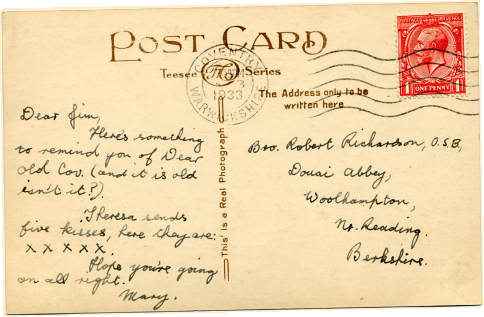 POST CARD
Teesee Series
COVENTRY
1933
WARWICKSHIRE
The Address only to be
written here
POSTAGE REVENUE
ONE PENNY
This is a Real Photograph
Dear Jim,
Here's something
to remind you of Dear
old Cov. (and it is old
isn't it?).
Theresa sends
five kisses, here they are:
x x x x x.
Hope you're going
on all right.
Mary.
Bro. Robert Richardson, O.S.B,
Douai Abbey,
Woolhampton,
Nr. Reading.
Berkshire.